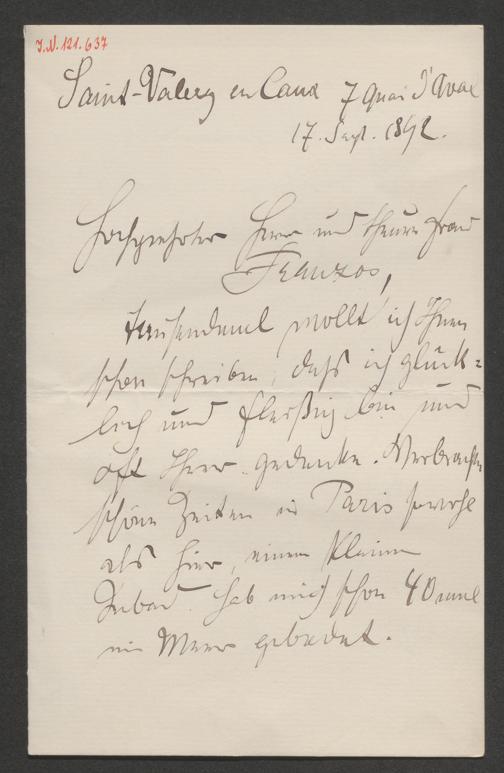 J.N. 121.637
Saint-Valery en Caux 7 Quai d'Aval
17. Sept. 1892.
Hochgeehrter Herr und theure Frau
Franzos,
tausendmal wollt ich Ihnen
schon schreiben, daß ich glück-
lich und fleißig bin und
oft Ihrer gedenke. Verbrachte
schöne Zeiten in Paris sowohl
als hier, einem kleinen
Hab mich schon 40 mal
im Meer gebadet.